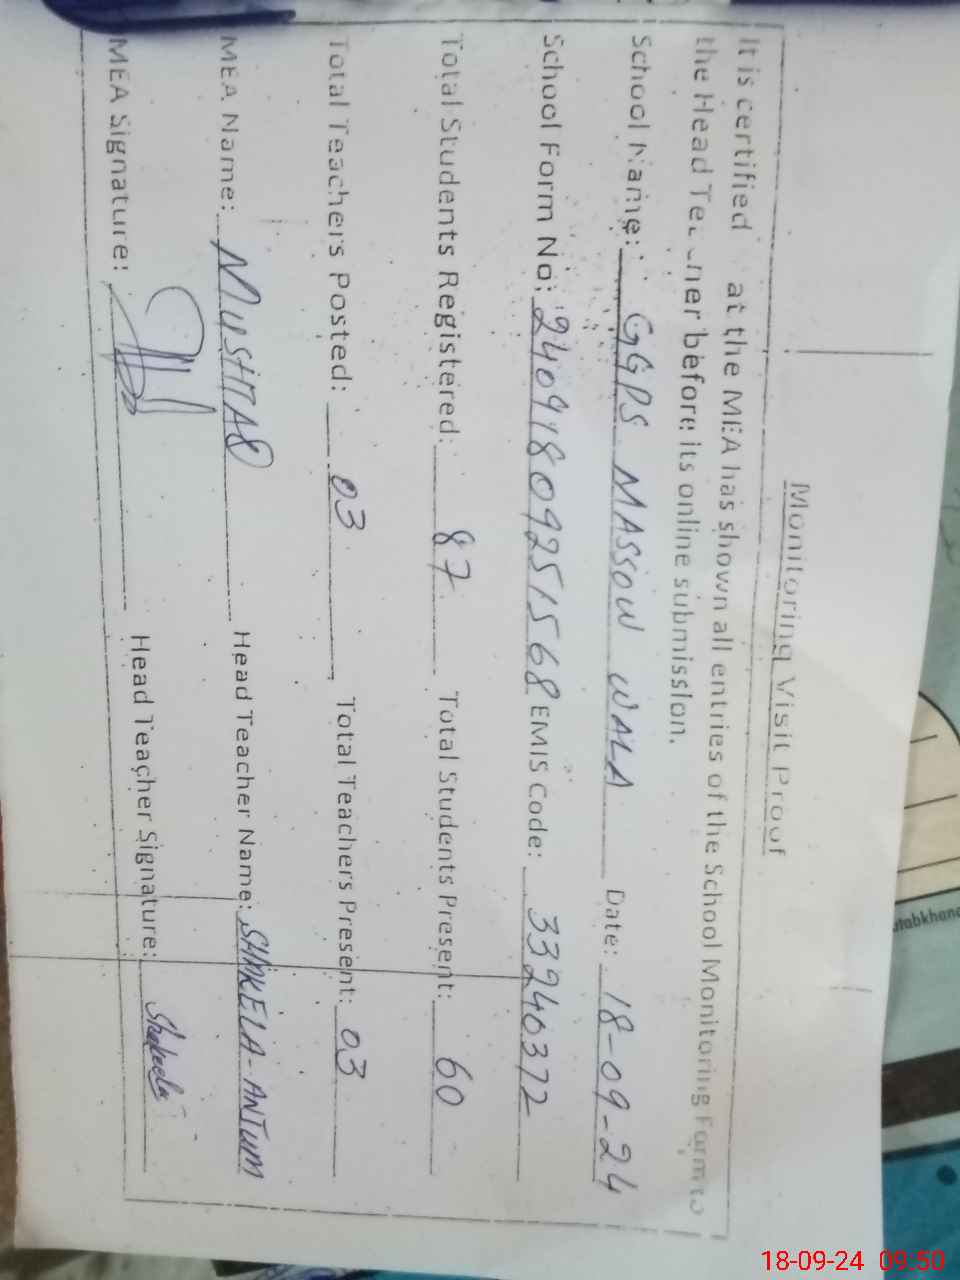 Monitoring Visit Proof
It is certified at the MEA has shown all entries of the School Monitoring Form to
the Head Teacher before its online submission.
School Name: GGPS MASSOW WALA Date: 18-09-24
School Form No: 24091809251568 EMIS Code: 33240372
Total Students Registered: 87 Total Students Present: 60
Total Teachers Posted: 03 Total Teachers Present: 03
MEA Name: MUSHTAQ Head Teacher Name: SHAKELA-ANJUM
MEA Signature: Head Teacher Signature: Shakeela
utabkhana
18-09-24 09:50